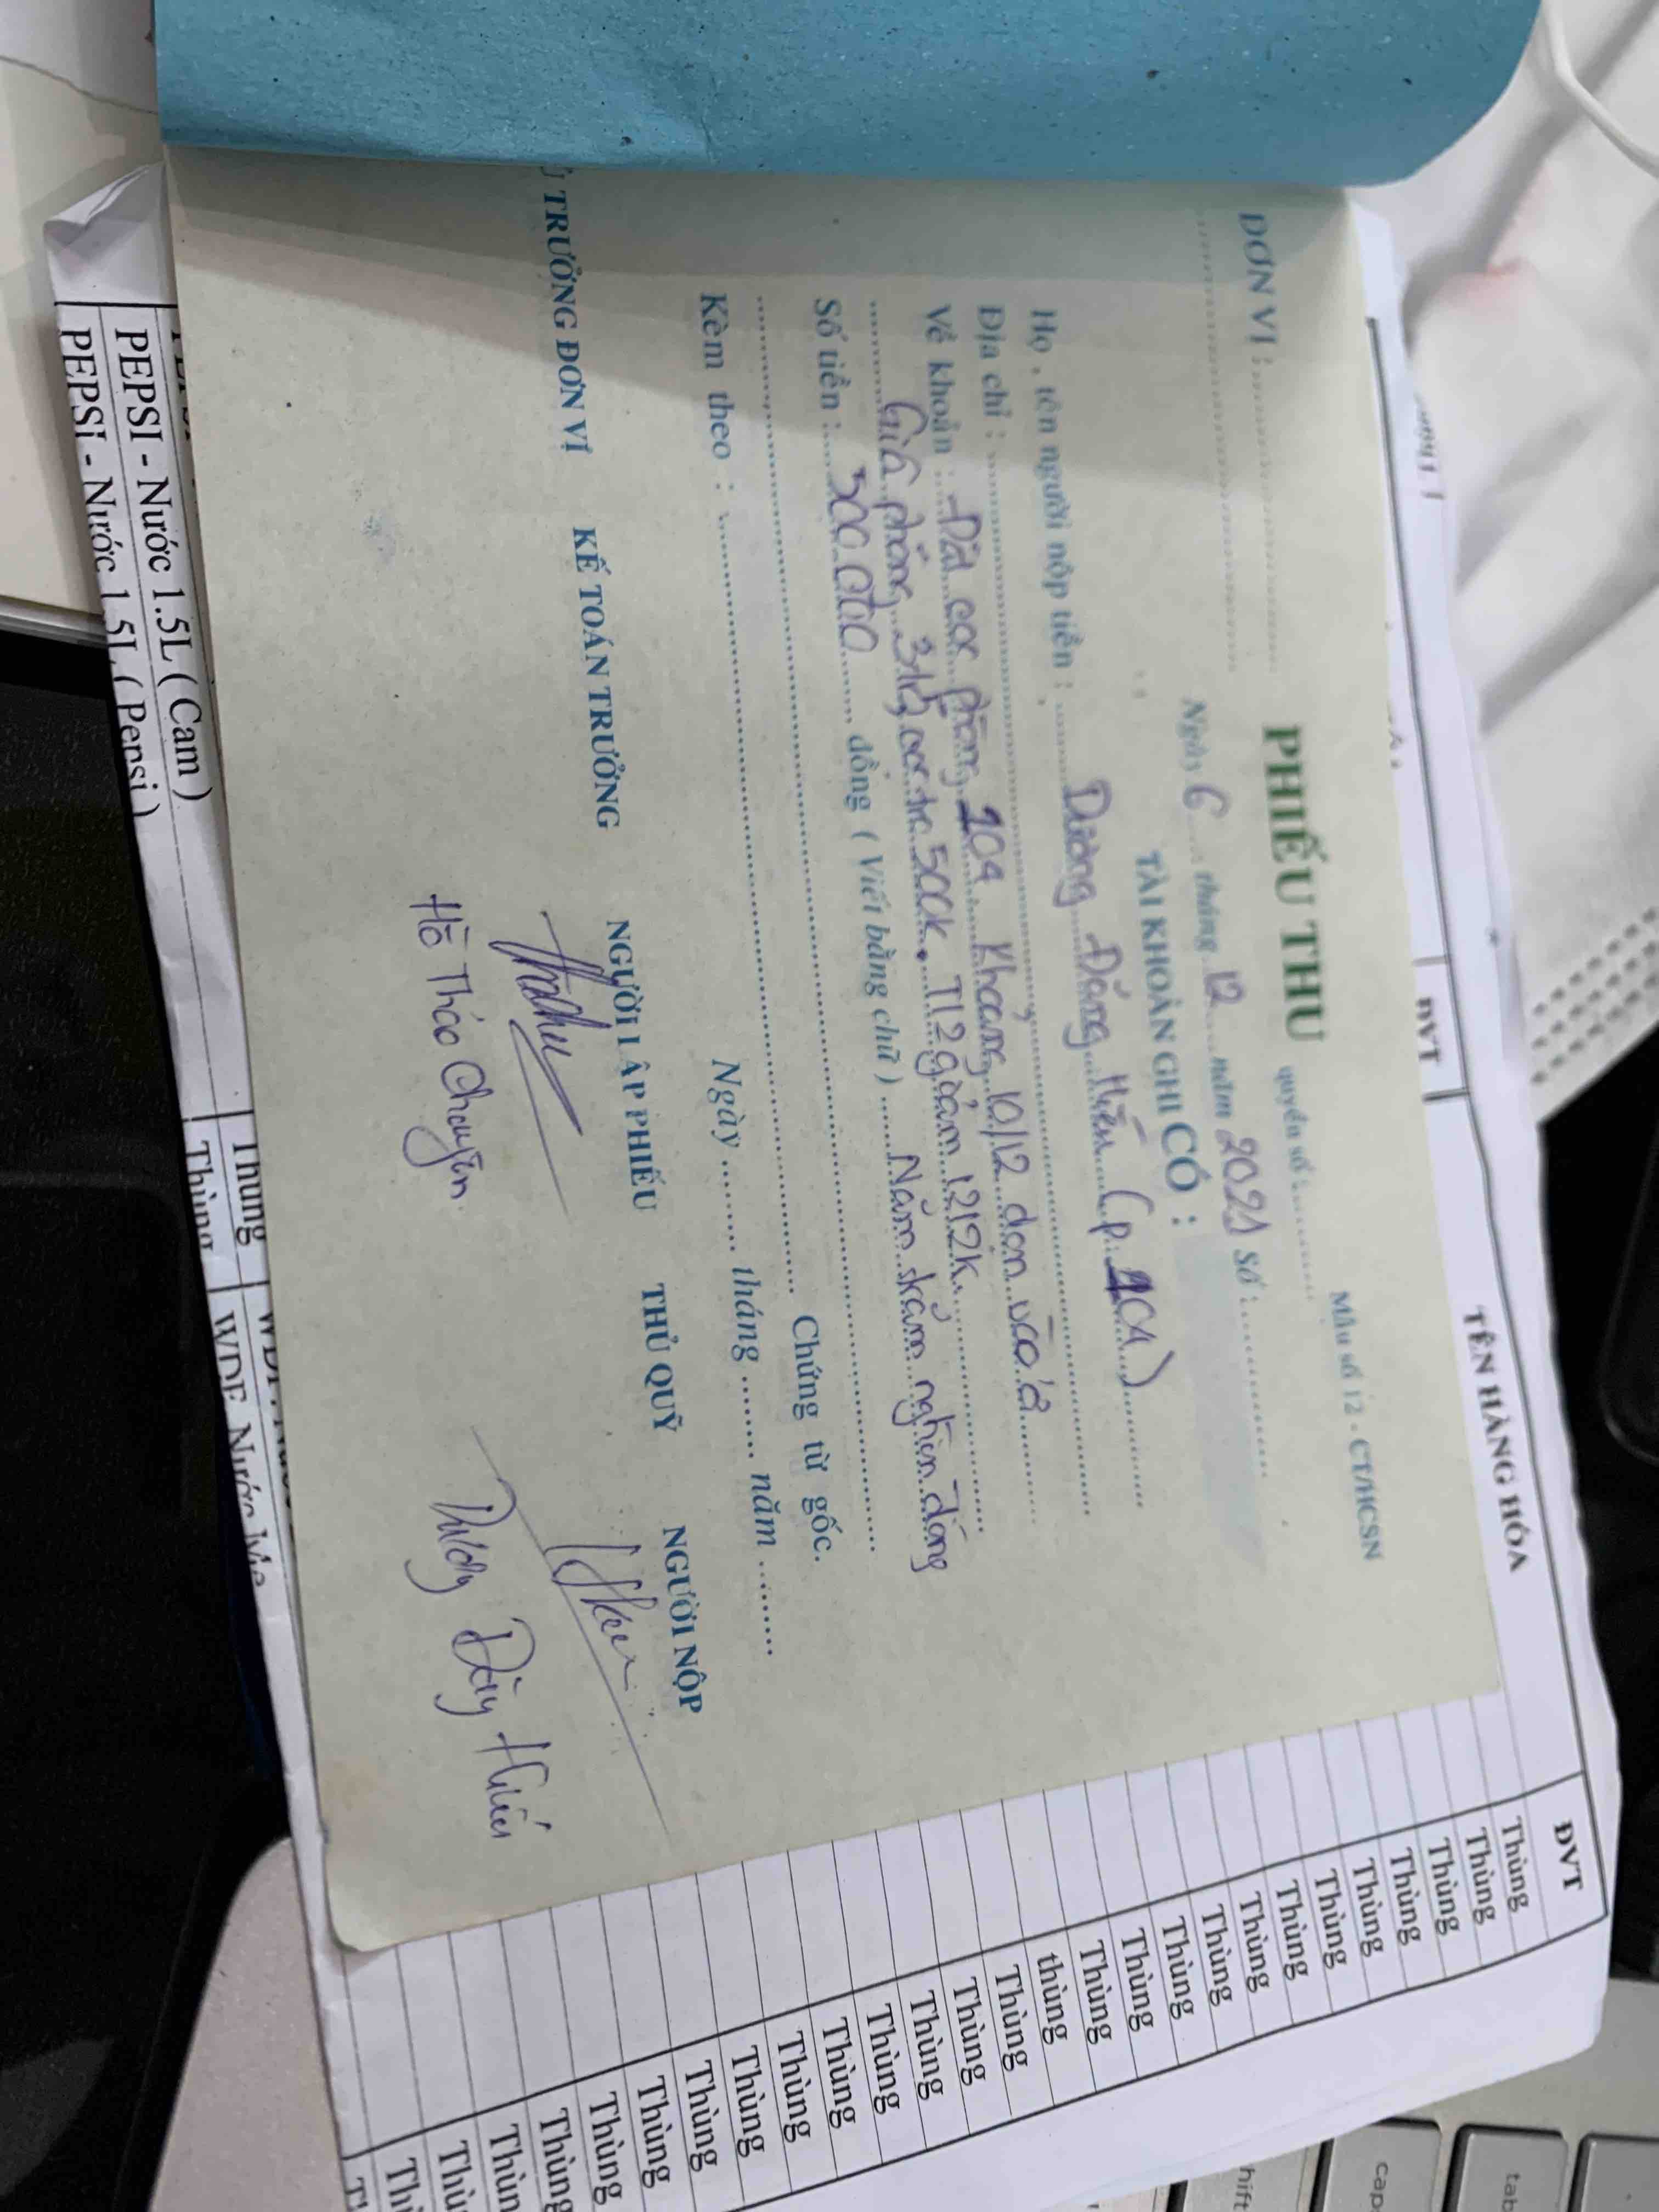 ĐƠN VỊ : 
PHIẾU THU
quyển số :
Mẫu số 12 - CT/HCSN
Ngày 6 tháng 12 năm 2021 Số :
TÀI KHOẢN GHI CÓ :
Họ , tên người nộp tiền : Dương Đăng Hiếu (p.104)
Địa chỉ :
Về khoản : Đặt cọc phòng 104 Khoảng 10/12 dọn vào ở
Giá phòng 3tr, cọc tr 500k. T12 giảm 1212k
Số tiền : 500.000 đồng ( Viết bằng chữ ) Năm trăm nghìn đồng
Kèm theo : Chứng từ gốc.
Ngày tháng năm
TRƯỞNG ĐƠN VỊ KẾ TOÁN TRƯỞNG NGƯỜI LẬP PHIẾU THỦ QUỸ NGƯỜI NỘP
Hồ Thảo Chuyên
Dương Đăng Hiếu
ĐVT
TÊN HÀNG HÓA
ĐVT
Thùng
Thùng
Thùng
Thùng
Thùng
Thùng
Thùng
Thùng
Thùng
Thùng
Thùng
thùng
Thùng
Thùng
Thùng
Thùng
Thùng
Thùng
Thùng
Thùng
Thùng
Thùng
Thùng
PEPSI - Nước 1.5L ( Cam )
Thùng
PEPSI - Nước 1.5L ( Pepsi )
Thùng
WDE
tab
caps
shift